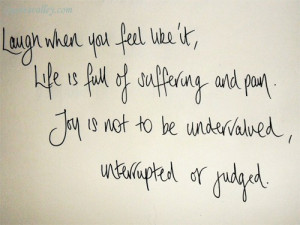 Laugh when you feel like it,
Life is full of suffering and pain.
Joy is not to be undervalued,
interrupted or judged.